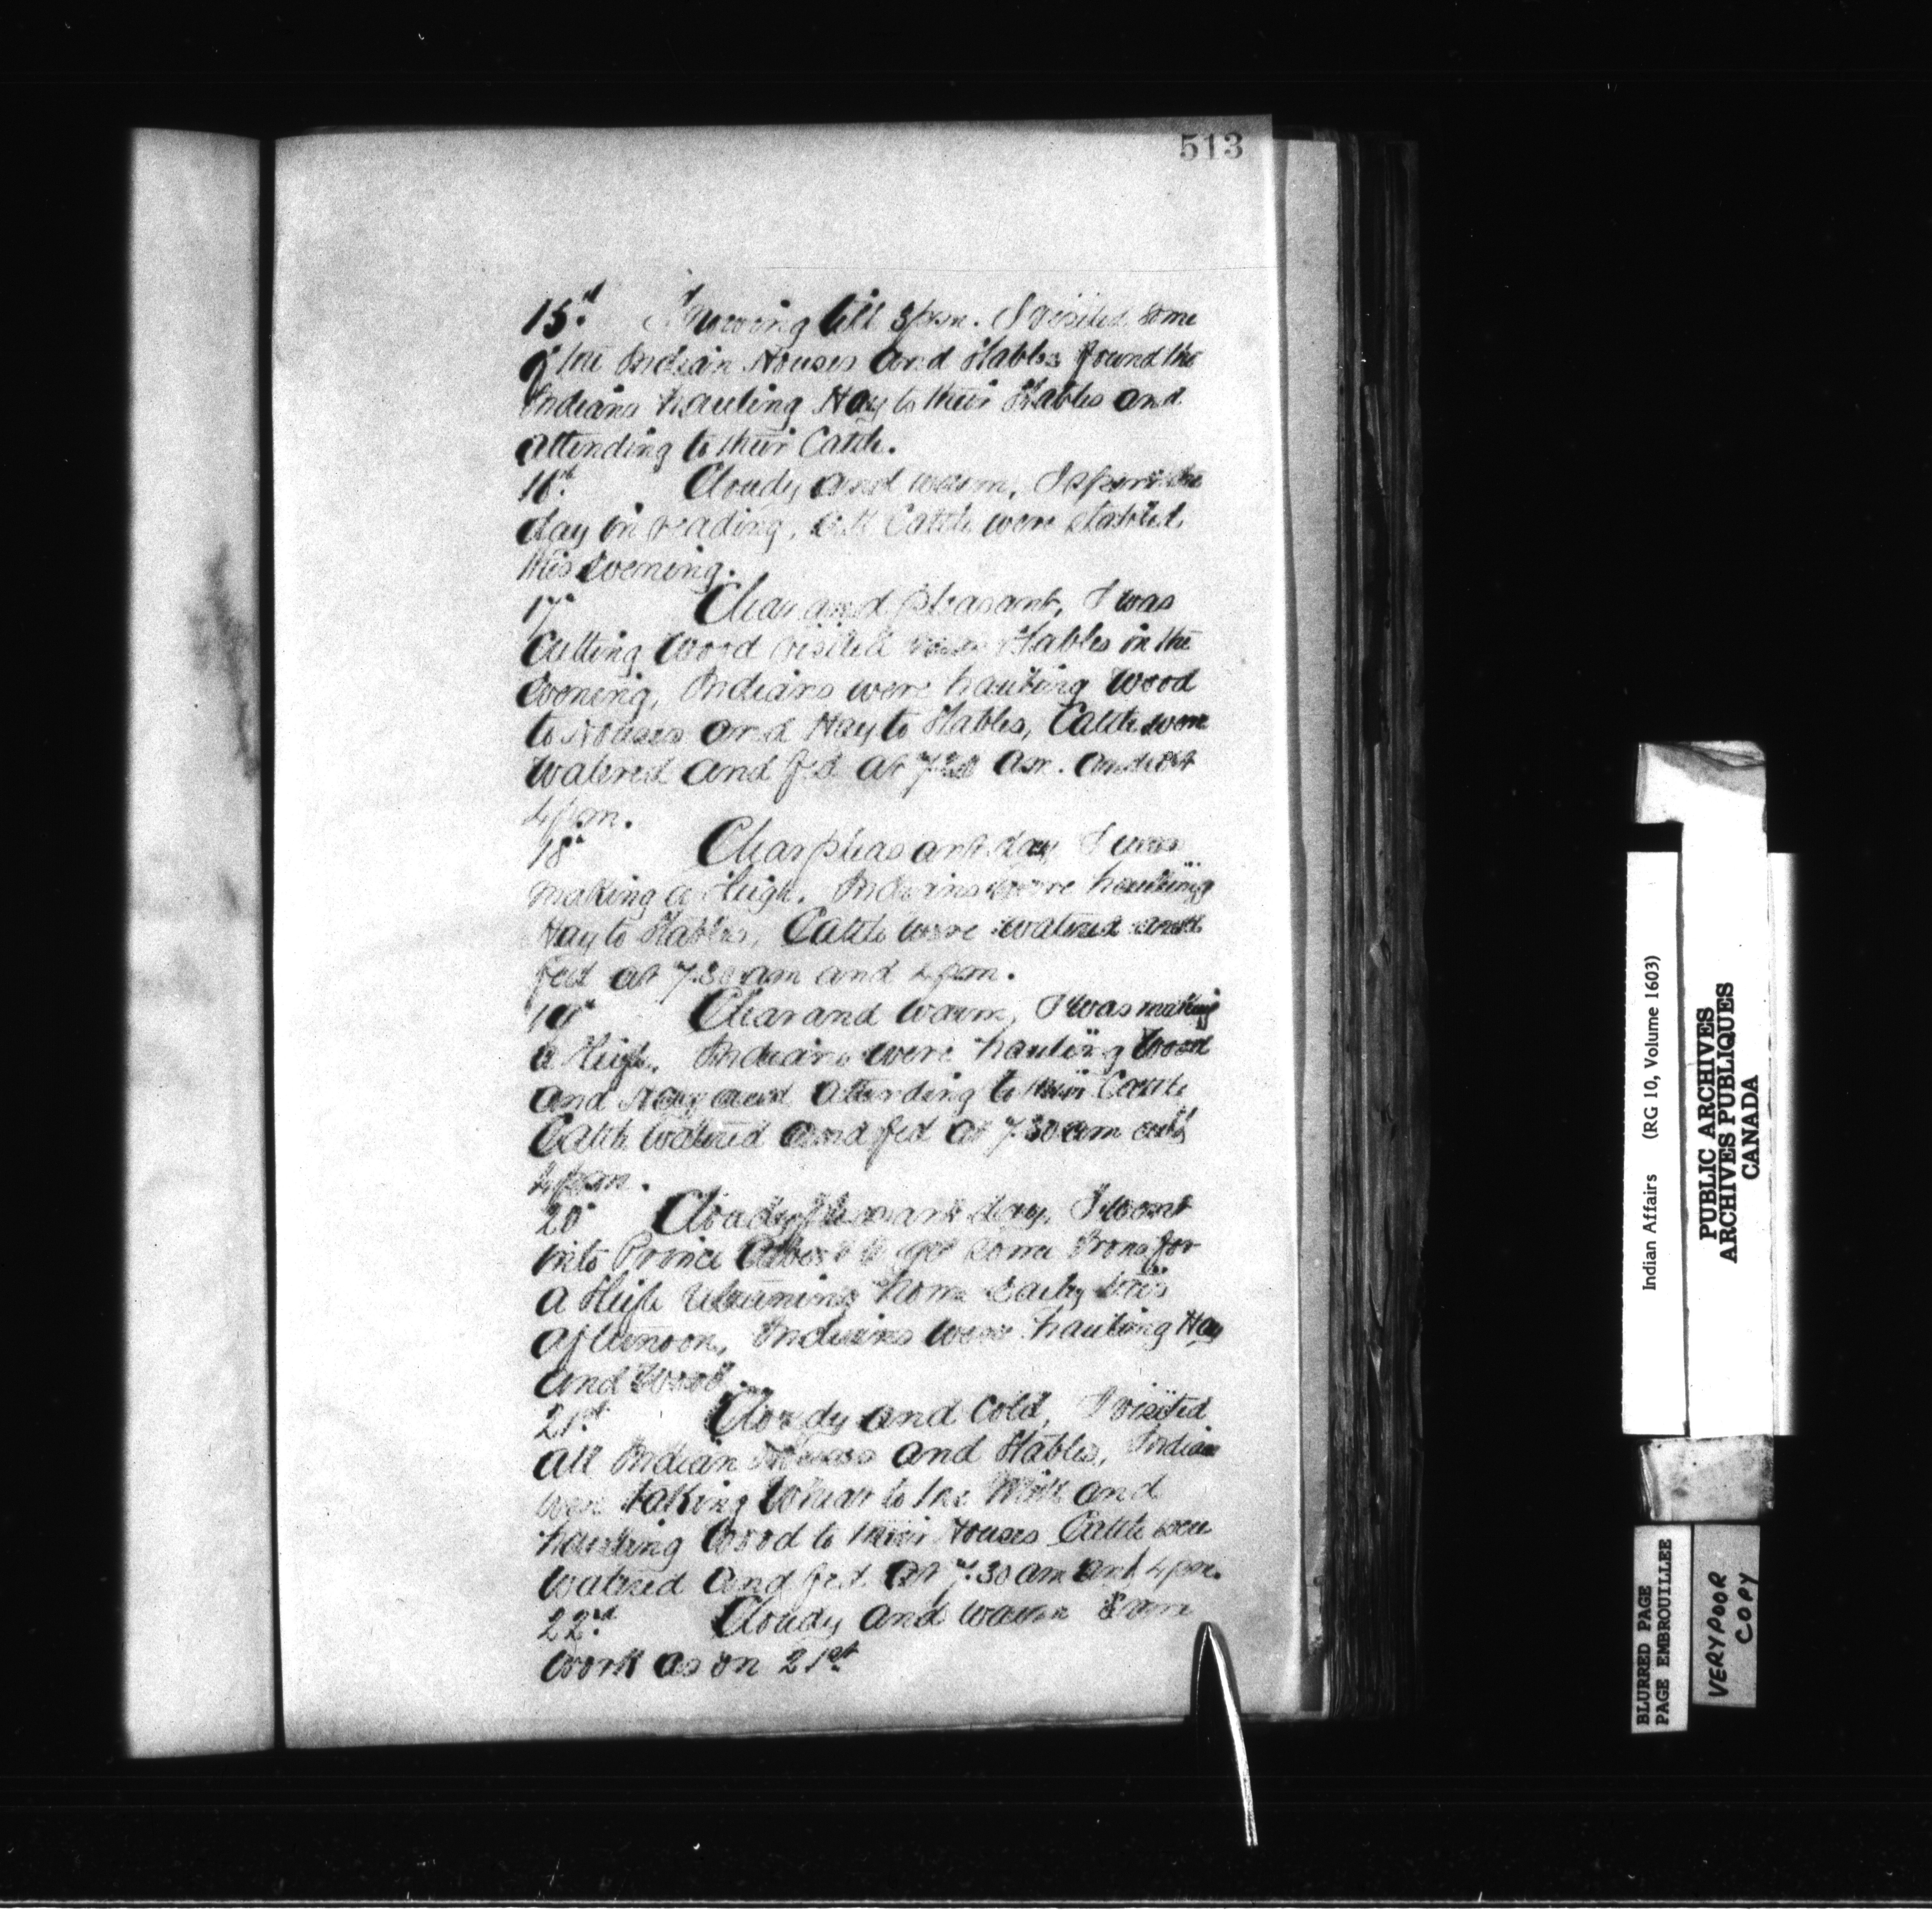 513
15th Snowing till 3 pm. I visited some
of the Indian Houses and Stables found the
Indians hauling Hay to their Stables and
attending to their Cattle.
16th Cloudy and warm, I spent the
day in reading, all Cattle were stabled
this evening.
17th Clear and pleasant, I was
Cutting Wood visited Stables in the
evening, Indians were hauling Wood
to Houses and Hay to Stables, Cattle were
Watered and fed at 7.30 am. and at
4 pm.
18th Clear pleasant day I was
making a Sleigh. Indians were hauling
Hay to Stables, Cattle were watered and
fed at 7.30 am and 4 pm.
19th Clear and warm, I was making
a Sleigh. Indians were hauling Wood
and Hay and attending to their Cattle
Cattle watered and fed at 7.30 am and
4 pm.
20th Cloudy day. I went
into Prince Albert to get some Irons for
a Sleigh returning home early this
afternoon, Indians were hauling Hay
and Wood.
21st Cloudy and Cold, I visited
all Indian Houses and Stables, Indian
were taking Wheat to the Mill and
hauling Wood to their Houses Cattle were
watered and fed at 7.30 am and 4 pm.
22nd Cloudy and warm Same
work as on 21st
Indian Affairs (RG 10, Volume 1603)
PUBLIC ARCHIVES
ARCHIVES PUBLIQUES
CANADA
BLURRED PAGE
PAGE EMBROUILLEE
VERY POOR
COPY